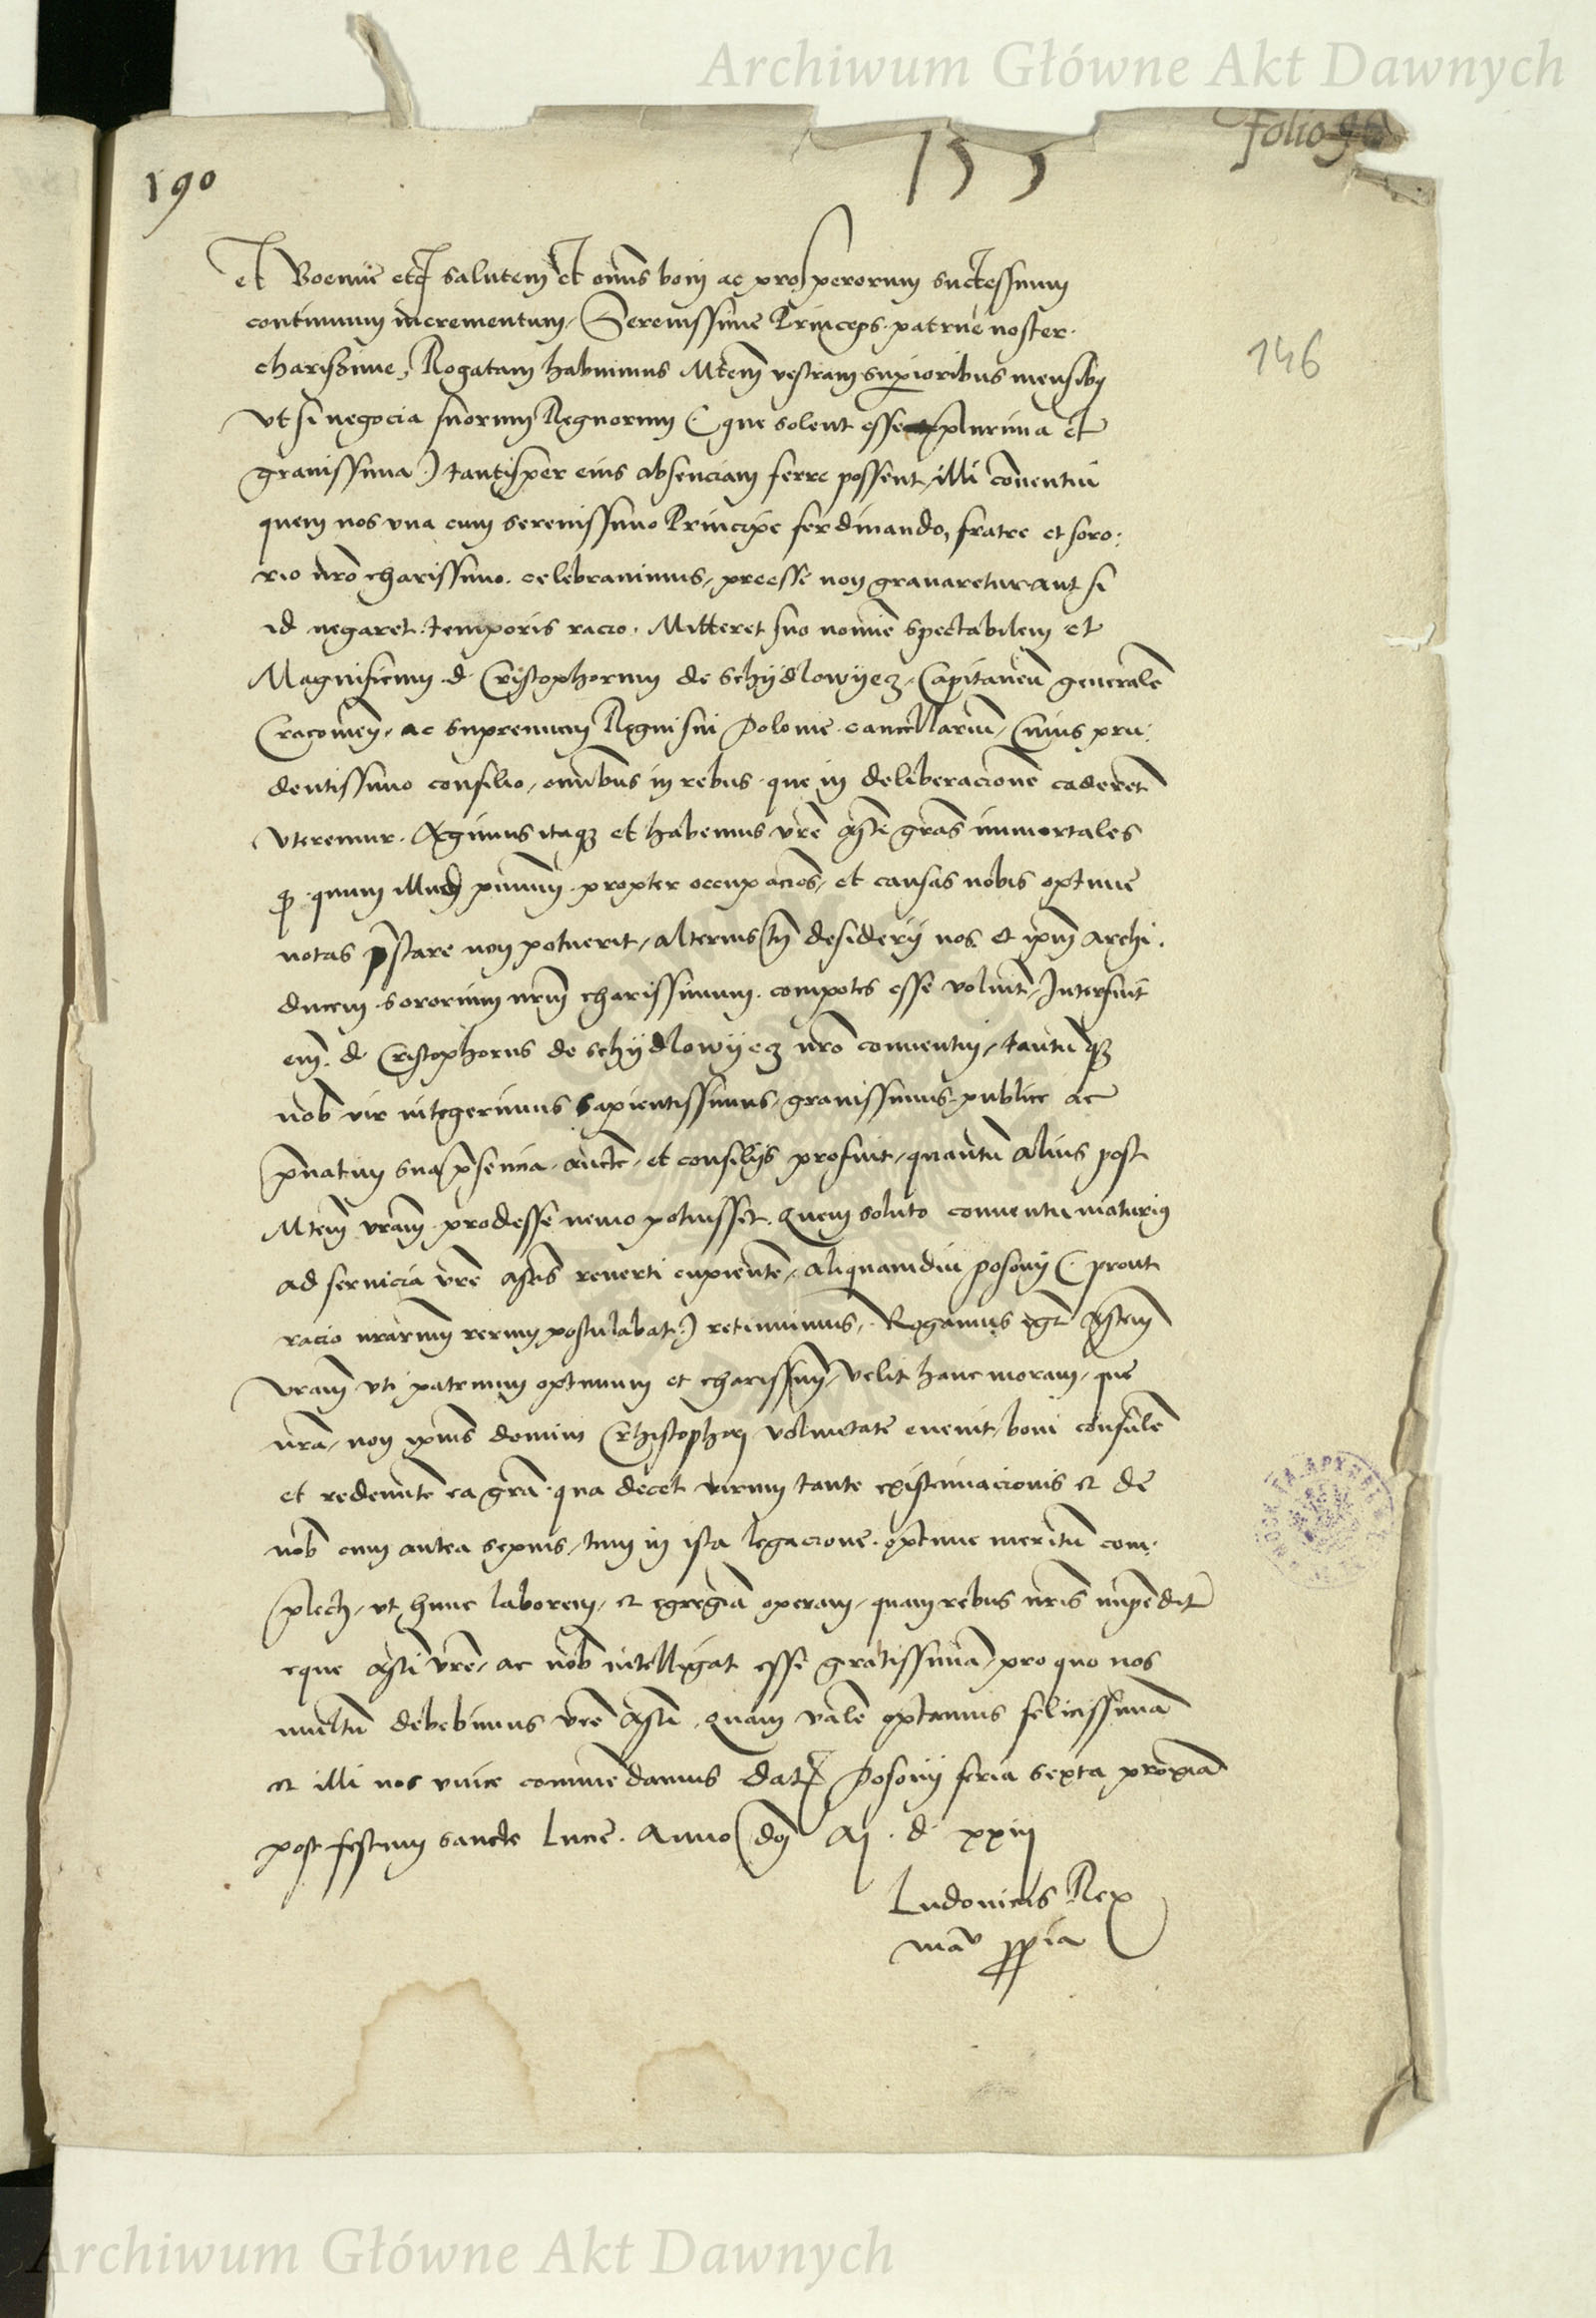 Archiwum Główne Akt Dawnych
folio 96
155
190
146
et Boemie etc̃ salutem et om̃s boni ac prosperorum successuum
continuum incrementum, Serenissime Princeps patrue noster
charissime, Rogatam habuimus Mtem̃ vestram superioribus mensibꝫ
vt si negocia suorum Regnorum (que solent esse plurima et
grauissima) tantisper eius absenciam ferre possent, illi conuentui
quem nos vna cum serenissimo Principe ferdinando, fratre et soro:
rio nr̃o charissimo celebrauimus, preesse non grauaretur aut si
id negaret temporis racio. Mitteret suo nomie spectabilem et
Magnificum d. Cristophorum de Schÿdlowÿecz, Capitaneũ generalẽ
Cracouien̄, ac supremum Regni sui Polonie cancellariũ, Cuius pru:
dentissimo consilio, omībus in rebus que in deliberacionẽ caderent
vteremur. Agimus itaqꝫ et habemus vrẽ Mtẽ gras̃ immortales
qꝫ quum illud primum propter occupaciõs, et causas nobis optime
notas p̃stare non potuerit, alterius tñ desiderij nos et ip̃m Archi.
ducem sororium nr̃m charissimum compotes esse voluit, Interfuit
em̃ d. Cristophorus de Schÿdlowÿecz nr̃o conuentui, tantũqꝫ
nob̃ vir integerimus sapientissimus, grauissimus publice ac
priuatim sua p̃sencia aucte, et consilijs profuit, quantũ alius post
Mtem̃ vram̃ prodesse nemo potuisset. Quem soluto conuentu maturiꝰ
ad seruicia vrẽ Mtis̃ reuerti cupientẽ, aliquamdiu Posonij (prout
racio nr̃arum rerum postulabat) retinuimus, Rogamus igr̃ Mtem̃
vram̃ vti patruum optimum et charissim̃, velit hanc moram, que
nrã, non ip̃ius domini Christophori voluntate euenit, boni consulẽ
et redeuntẽ ea grã qua decet virum tante existimacionis et de
nob̃ cum antea sepius, tum in ista legacione optime meritũ com:
plecti, vt hunc laborem, et egregiã operam, quam rebus nr̃is impendit
eque Mti vrẽ, ac nob̃ intelligat esse gratissimã, pro quo nos
multũ debebimus vrẽ Mti, Quam valẽ optamus felicissimã
et illi nos vnice commendamus Dat̃ Posonij feria sexta proxiã
post festum sancte Lucie. Anno dñi M. d. xxiij
Ludouicus Rex
manu ꝓpria
Archiwum Główne Akt Dawnych